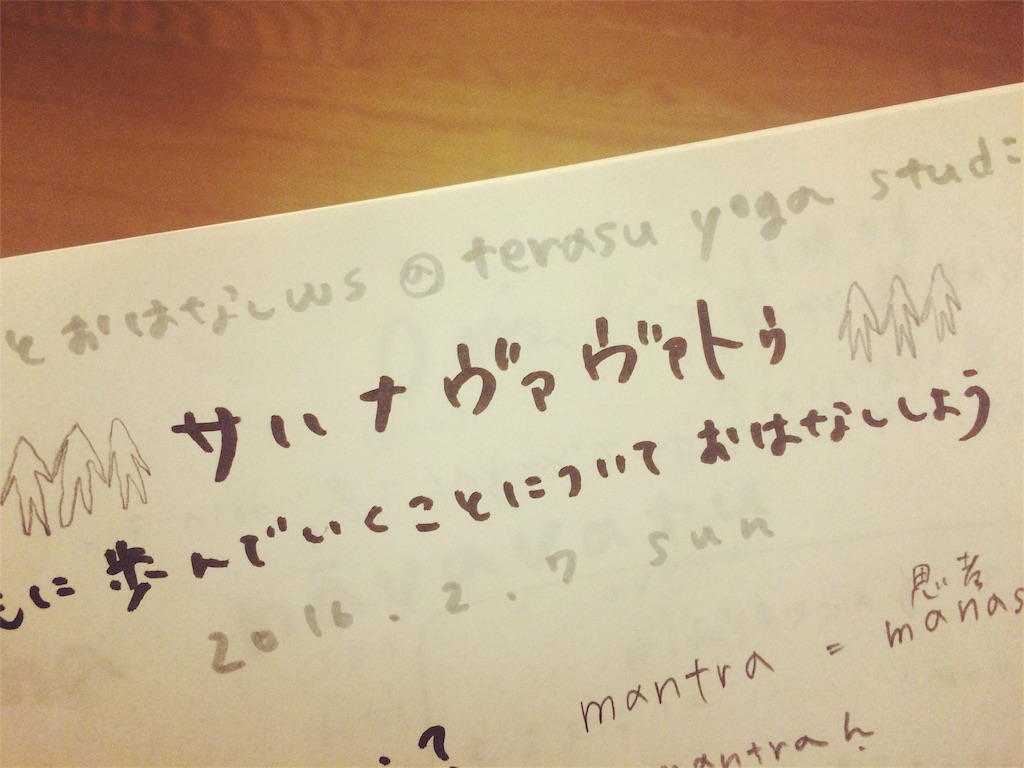 と おはなしWS @ terasu yoga studi
サハ ナ ヴァ ヴァトゥ
もに 歩んでいくことについて おはなししよう
2016.2.7 sun
思考
mantra = manas
?
mantrah